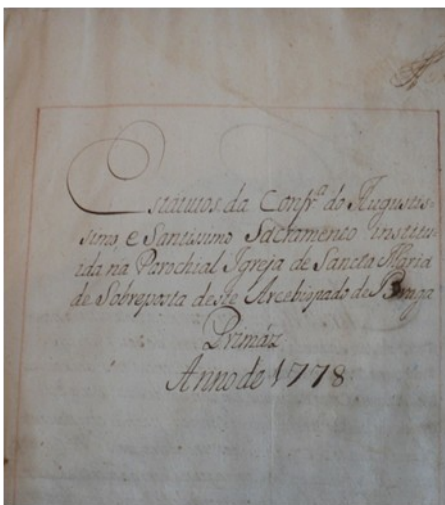 Estatutos da Confr.ª do Augustis-
simo, e Santissimo Sacramento institu-
ida na Parochial Igreja de Sancta Maria
de Sobreposta deste Arcebispado de Braga
Primáz
Anno de 1778